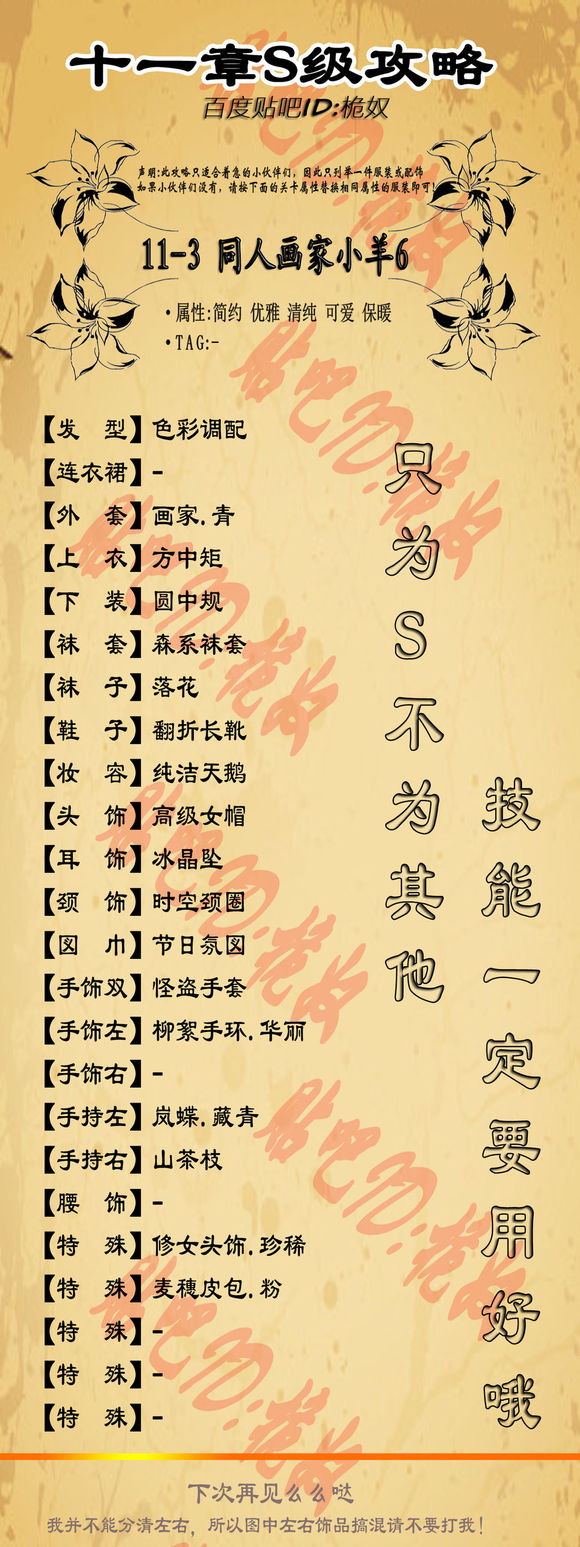 十一章S级攻略
百度贴吧ID:桅奴
声明:此攻略只适合着急的小伙伴们，因此只列举一件服装或配饰
如果小伙伴们没有，请按下面的关卡属性替换相同属性的服装即可!
11-3 同人画家小羊6
·属性:简约 优雅 清纯 可爱 保暖
·TAG:-
【发 型】色彩调配
【连衣裙】-
【外 套】画家.青
【上 衣】方中矩
【下 装】圆中规
【袜 套】森系袜套
【袜 子】落花
【鞋 子】翻折长靴
【妆 容】纯洁天鹅
【头 饰】高级女帽
【耳 饰】冰晶坠
【颈 饰】时空颈圈
【围 巾】节日氛围
【手饰双】怪盗手套
【手饰左】柳絮手环.华丽
【手饰右】-
【手持左】岚蝶.藏青
【手持右】山茶枝
【腰 饰】-
【特 殊】修女头饰.珍稀
【特 殊】麦穗皮包.粉
【特 殊】-
【特 殊】-
【特 殊】-
只为S不为其他
技能一定要用好哦
贴吧ID:桅奴
贴吧ID:桅奴
贴吧ID:桅奴
贴吧ID:桅奴
贴吧ID:桅奴
贴吧ID:桅奴
下次再见么么哒
我并不能分清左右，所以图中左右饰品搞混请不要打我!